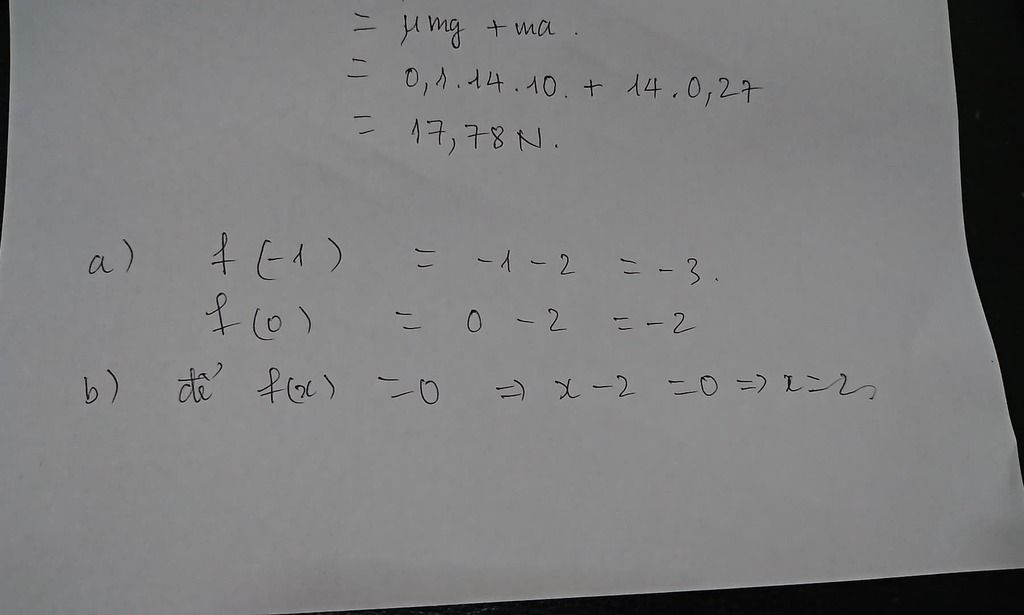 = μmg + ma.
= 0,1.14.10. + 14.0,27
= 17,78N.
a) f(-1) = -1-2 = -3.
f(0) = 0 -2 = -2
b) để f(x) =0 => x-2 =0 => x=2,